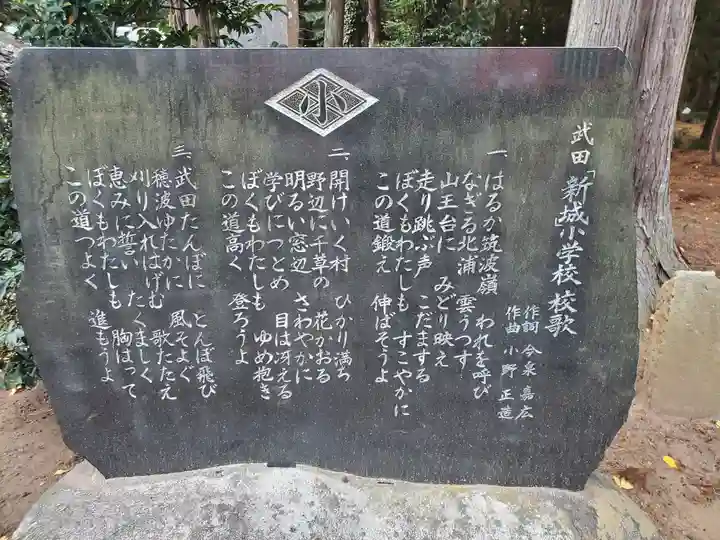 武田「新城」小学校 校歌
作詞 今泉嘉広
作曲 小野正造
一、はるか筑波嶺 われを呼び
なぎる北浦 雲うつす
山王台に みどり映え
走り跳ぶ声 こだまする
ぼくもわたしも すこやかに
この道鍛え 伸ばそうよ
二、開けいく村 ひかり満ち
野辺に千草の 花かおる
明るい窓辺 さわやかに
学びにつとめ 目は冴える
ぼくもわたしも ゆめ抱き
この道高く 登ろうよ
三、武田たんぼに とんぼ飛び
穂波ゆたかに 風そよぐ
刈り入れはげむ 歌たたえ
恵みに誓い たくましく
ぼくもわたしも 胸はって
この道つよく 進もうよ